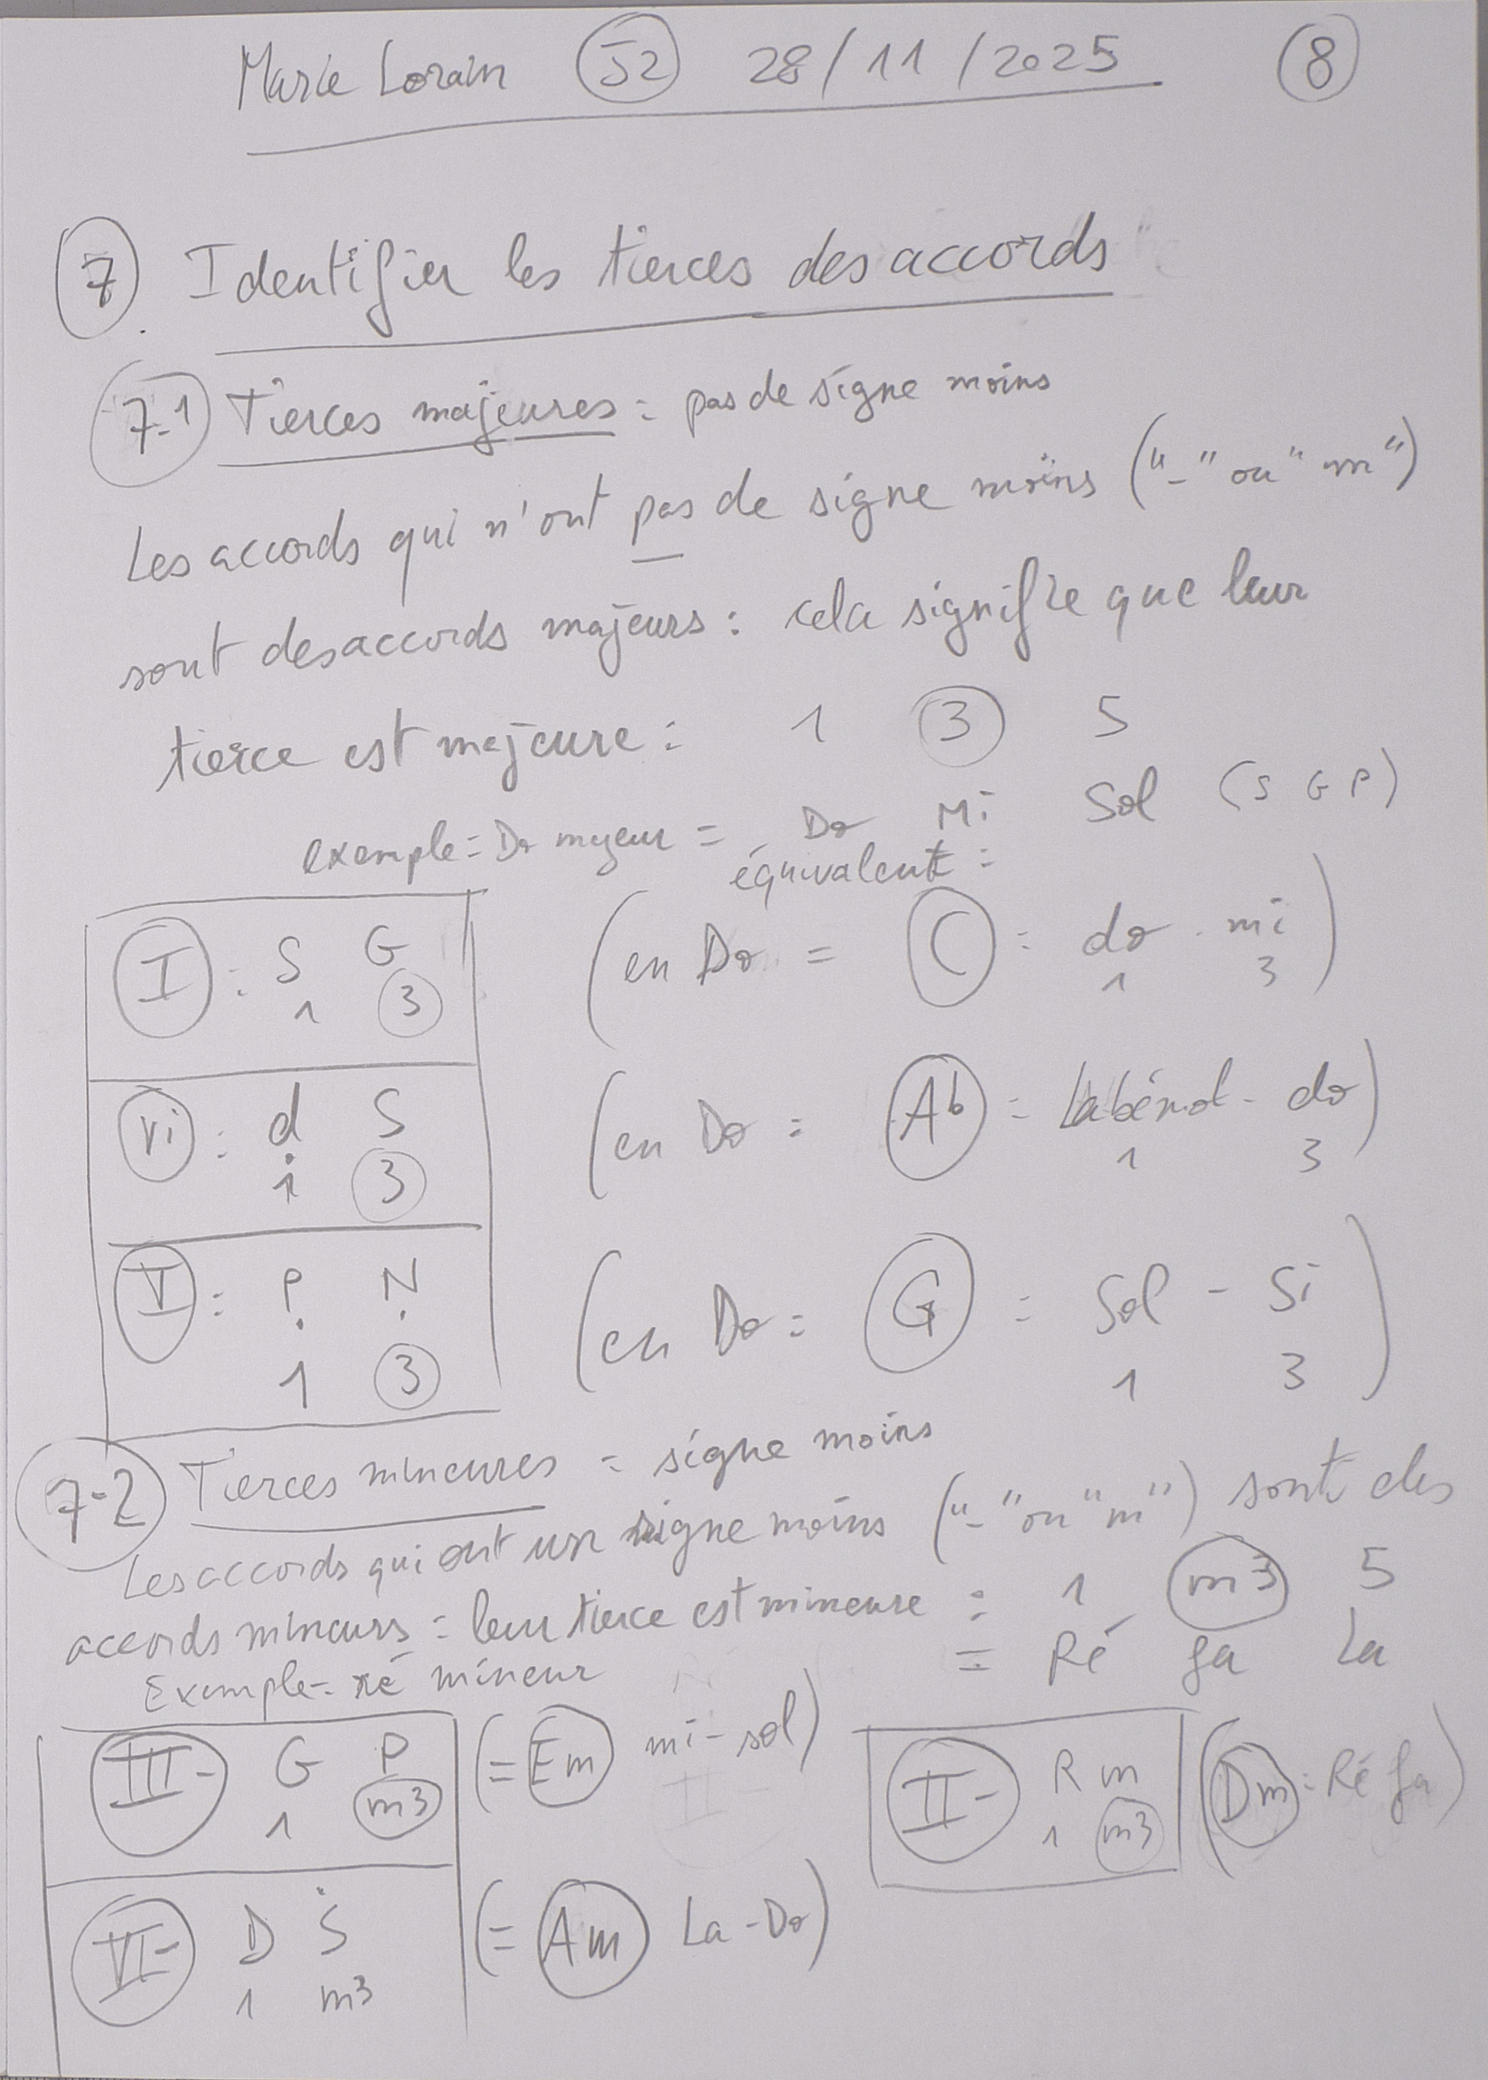 Marie Lorain J2 28/11/2025 8
7. Identifier les tierces des accords
7-1 Tierces majeures = pas de signe moins
Les accords qui n'ont pas de signe moins ("-" ou "m")
sont des accords majeurs : cela signifie que leur
tierce est majeure : 1 3 5
exemple = Do majeur = Do Mi Sol (S G P)
équivalent :
I : S G (en Do = C : do - mi)
1 3 1 3
vi : d S (en Do = Ab = La bémol - do)
1 3 1 3
V : P N (en Do = G = Sol - Si)
1 3 1 3
7-2 Tierces mineures = signe moins
Les accords qui ont un signe moins ("-" ou "m") sont des
accords mineurs = leur tierce est mineure = 1 m3 5
Exemple = ré mineur = Ré fa La
III- G P (= Em mi-sol) II- R m (Dm = Ré fa)
1 m3 1 m3
VI- D S (= Am La-Do)
1 m3